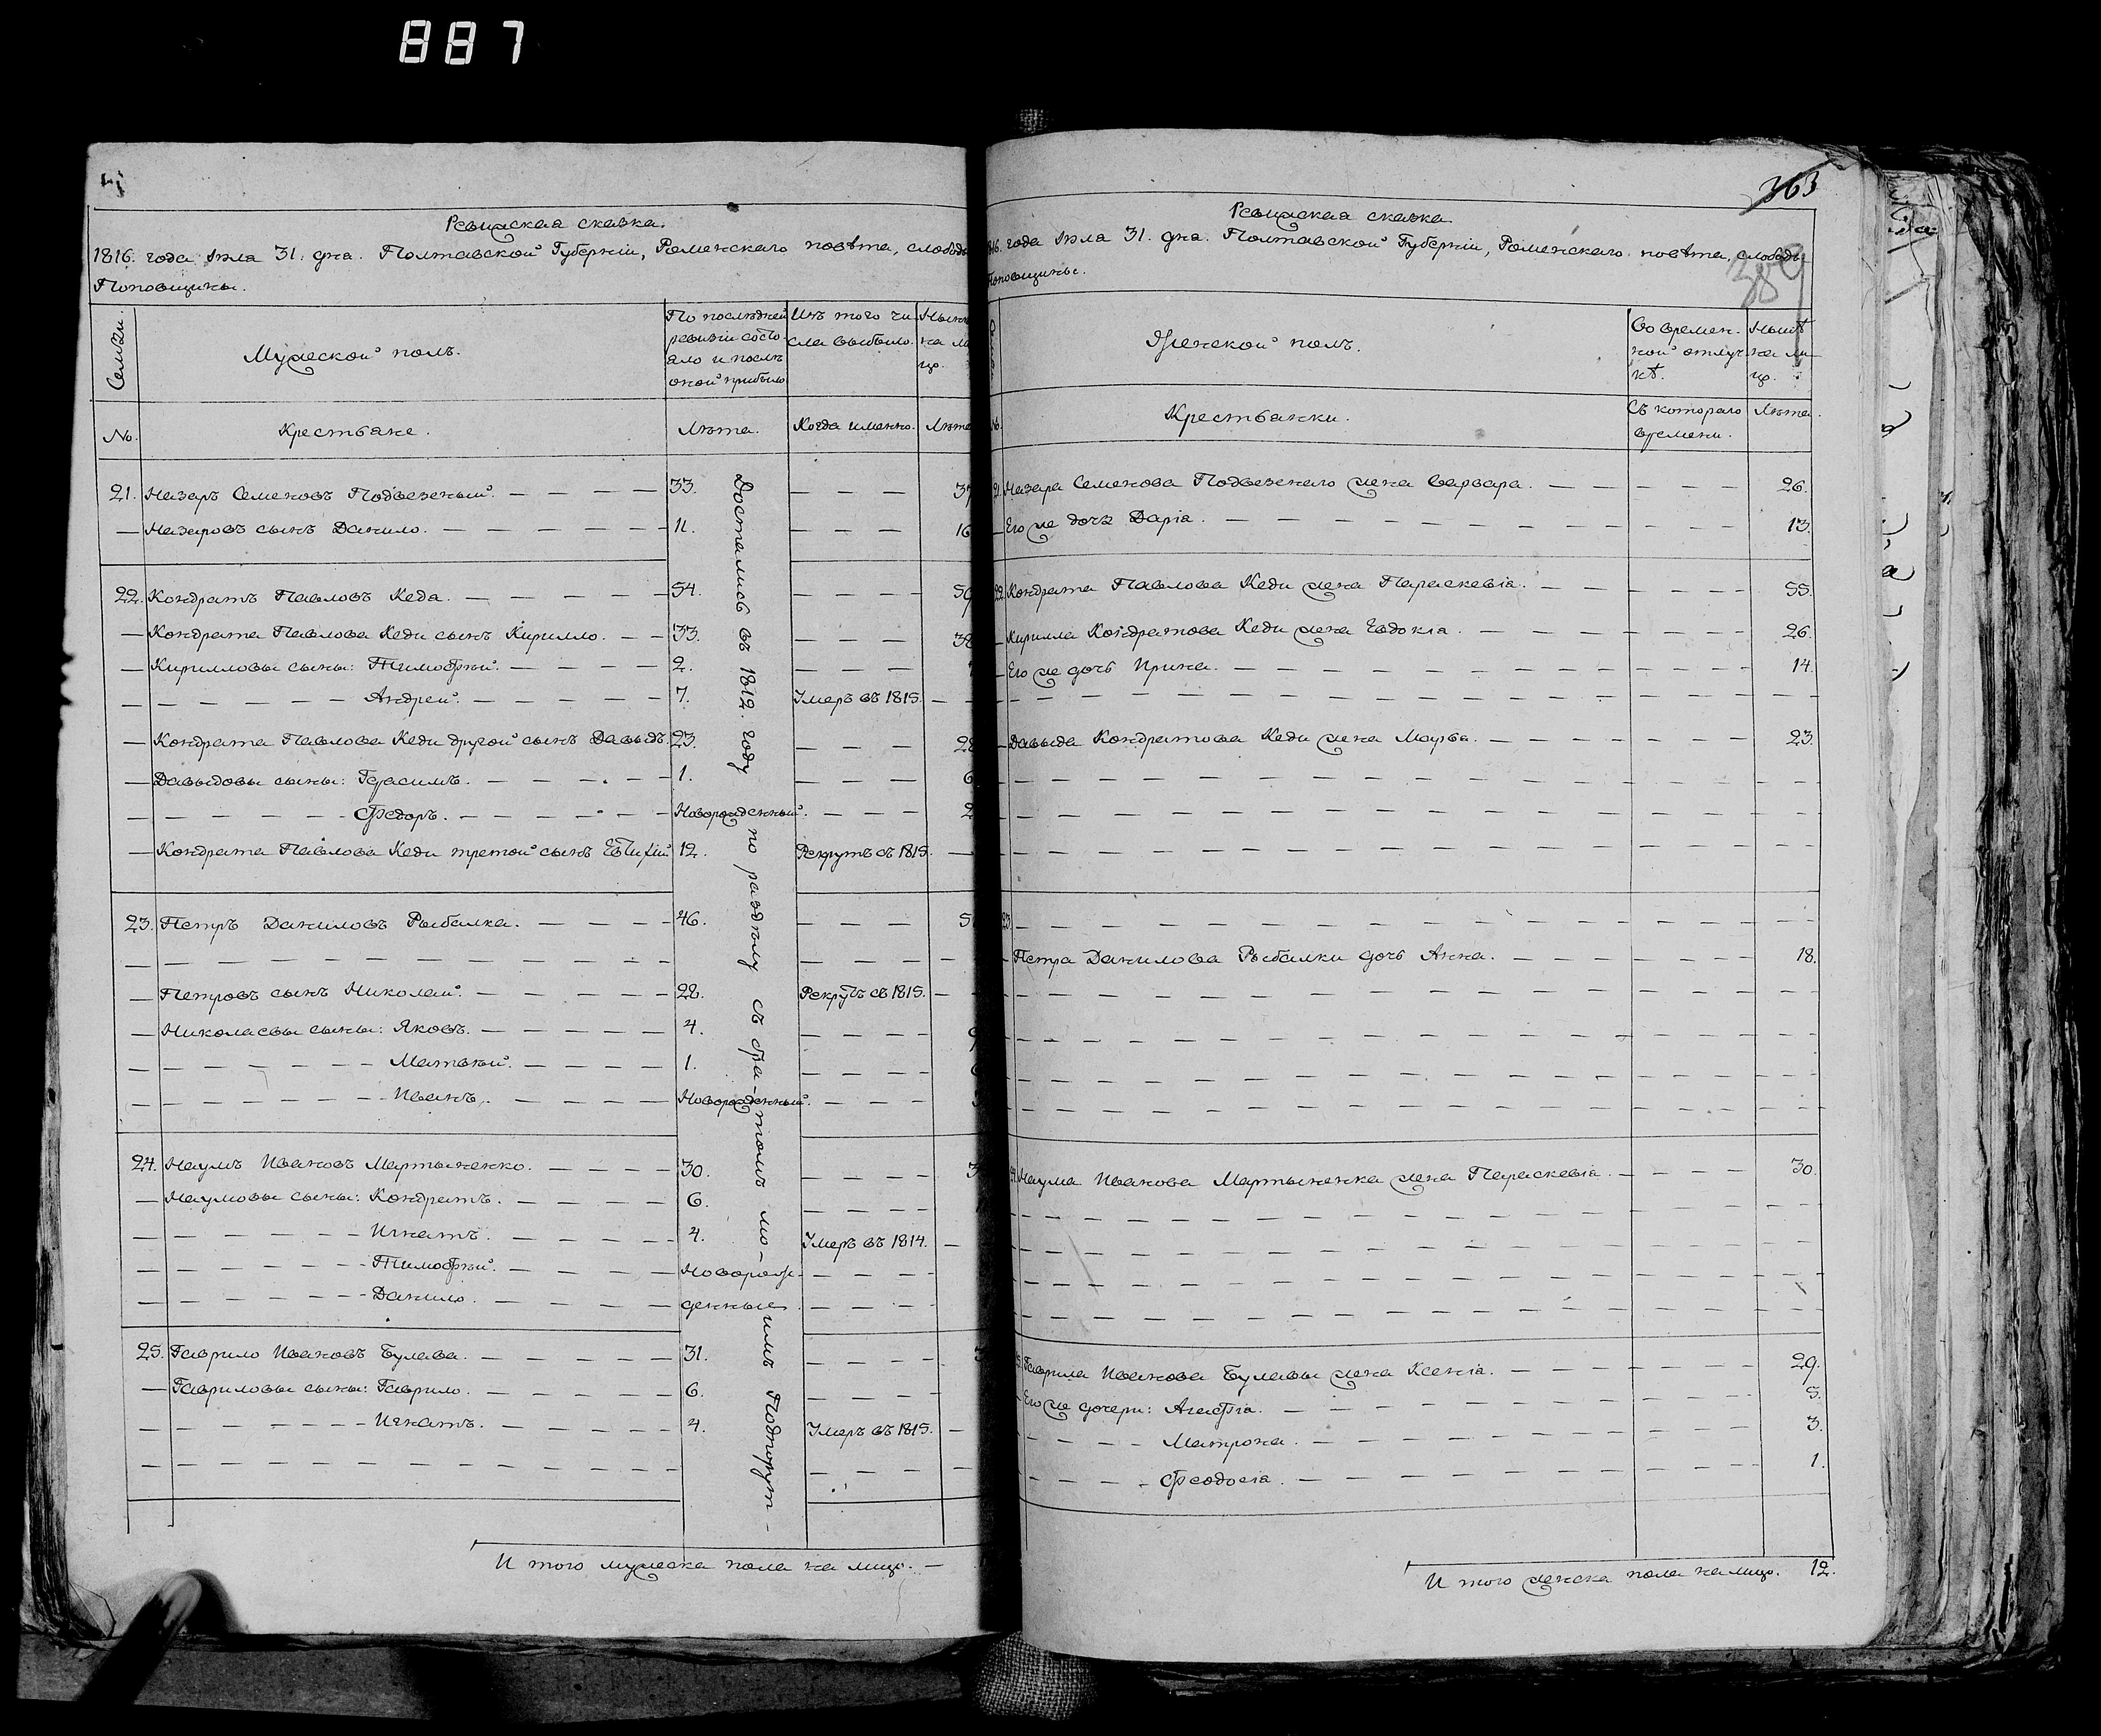 887
Ревизская сказка.
1816. года Маія 31. дня. Полтавской Губерніи, Роменскаго повѣта, слободы
Поповщины.
Семьи.
Мужеской полъ.
По послѣдней
ревизіи состо-
яло и послѣ
оной прибыло
Изъ того чи-
сла выбыло.
Нынѣ
на ли
цо.
No.
Крестьяне.
Лѣта.
Когда именно.
Лѣта
21. Назаръ Семеновъ Подвезный. — — — — 33. — — — 37
— Назаровъ сынъ Данило. — — — — — 11. — — — 16
22. Кондратъ Павловъ Кеда. — — — — — 54. — — — — 59
— Кондрата Павлова Кеди сынъ Кирилло. — — 33. — — — — 38
— Кирилловы сыны: Тимофѣй. — — — — 2. — — — —
— — — — — — Андрей. — — — — — 7. Умеръ въ 1815. —
— Кондрата Павлова Кеди другой сынъ Давыдъ. 23. — — — 28
— Давыдовы сыны: Герасимъ. — — — — — 1. — — — 6
— — — — — — Ѳедоръ. — — — — — — Новорожденный. — — — 2
— Кондрата Павлова Кеди третой сынъ Евтифій 12. Рекрутъ съ 1815. —
23. Петръ Даниловъ Рыбалка. — — — — 46. — — — 5
— — — — — — — — — — — — — — —
— Петровъ сынъ Николай. — — — — — 22. Рекрутъ съ 1815. —
— Николаевы сыны: Яковъ. — — — — — 4. — — — —
— — — — — — — Матвѣй. — — — — 1. — — — —
— — — — — — — Иванъ. — — — — — Новорожденный. — — —
24. Наумъ Ивановъ Мартыненко. — — — — 30. — — — — 3
— Наумовы сыны: Кондратъ. — — — — 6. — — — —
— — — — — — Игнатъ. — — — — — 4. Умеръ въ 1814. —
— — — — — — Тимофѣй. — — — — Новорож- — — — —
— — — — — — Данило. — — — — — денные. — — — —
25. Гаврило Ивановъ Булава. — — — — — 31. — — — — 3
— Гавриловы сыны: Гаврило. — — — — — 6. — — — —
— — — — — — Игнатъ. — — — — — 4. Умеръ въ 1815. —
— — — — — — — — — — — — — — —
Достались въ 1812. году по раздѣлу съ бра-томъ мо-имъ Подпорут-
И того мужеска пола на лицо. —
363
389
Ревизская сказка.
1816. года Маія 31. дня. Полтавской Губерніи, Роменскаго повѣта, слободы
Поповщины.
Женской полъ.
Во времен-
ной отлуч-
кѣ.
Нынѣ
на ли-
цо.
No.
Крестьянки.
Съ котораго
времени.
Лѣта.
21. Назара Семенова Подвезнаго жена Варвара. — — — — — 26.
— Его же дочь Дарія. — — — — — — — — 13.
22. Кондрата Павлова Кеди жена Параскевія. — — — — — 55.
— Кирилла Кондратова Кеди жена Евдокіа. — — — — — 26.
— Его же дочь Ирина. — — — — — — — — 14.
— — — — — — — — — — — —
— Давыда Кондратова Кеди жена Марѳа. — — — — — 23.
— — — — — — — — — — — —
— — — — — — — — — — — —
— — — — — — — — — — — —
23. — — — — — — — — — — —
— Петра Данилова Рыбалки дочь Анна. — — — — — 18.
— — — — — — — — — — — —
— — — — — — — — — — — —
— — — — — — — — — — — —
— — — — — — — — — — — —
24. Наума Иванова Мартыненка жена Параскевіа. — — — — 30.
— — — — — — — — — — — —
— — — — — — — — — — — —
— — — — — — — — — — — —
— — — — — — — — — — — —
25. Гаврила Иванова Булавы жена Ксеніа. — — — — — 29.
— Его же дочери: Агафіа. — — — — — — 5.
— — — — Матрона. — — — — — — 3.
— — — — Ѳеодосіа. — — — — — — 1.
И того женска пола на лицо. 12.